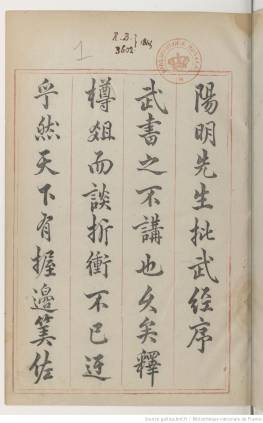 陽明先生批武经序
武書之不講也久矣釋
樽俎而談折衝不已迂
乎然天下有握邊筭佐
1
Source gallica.bnf.fr / Bibliothèque nationale de France